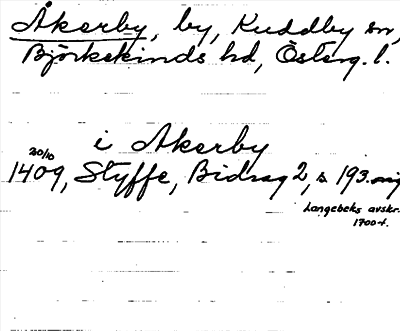 Åkerby, by, Kuddby sn,
Björkekinds hd, Österg. l.
i Akerby
20/10
1409, Styffe, Bidrag 2, s 193. orig
Langebeks avskr.
1700-t.